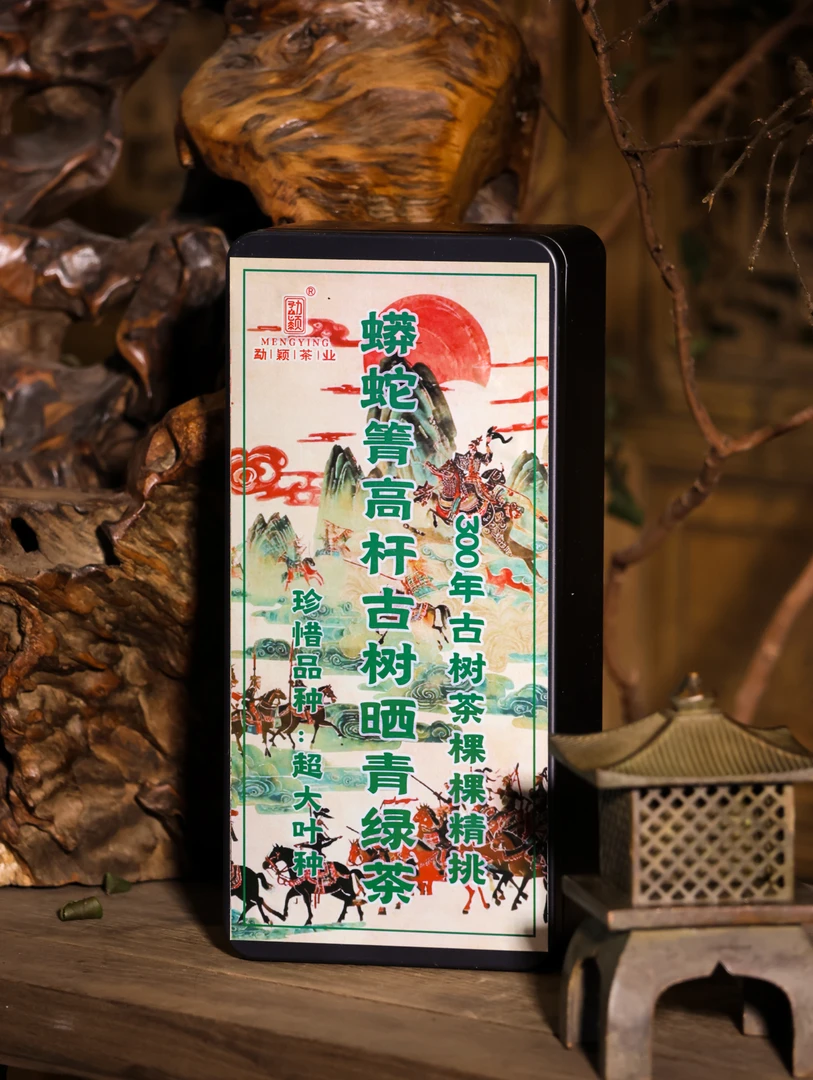 勐颖
®
MENGYING
勐|颖|茶|业
蟒蛇箐高杆古树晒青绿茶
300年古树茶棵棵精挑
珍惜品种：超大叶种